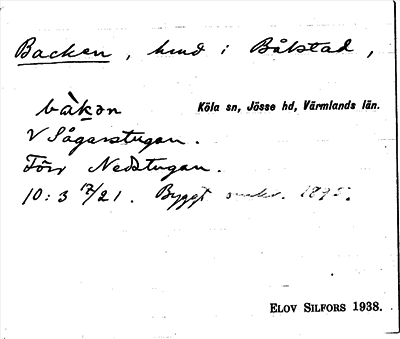 Backen, hmd i Bålstad,
bàkən Köla sn, Jösse hd, Värmlands län.
V Sågarstugan.
Förr Nedstugan.
10:3 17/21. Byggt 1895.
ELOV SILFORS 1938.